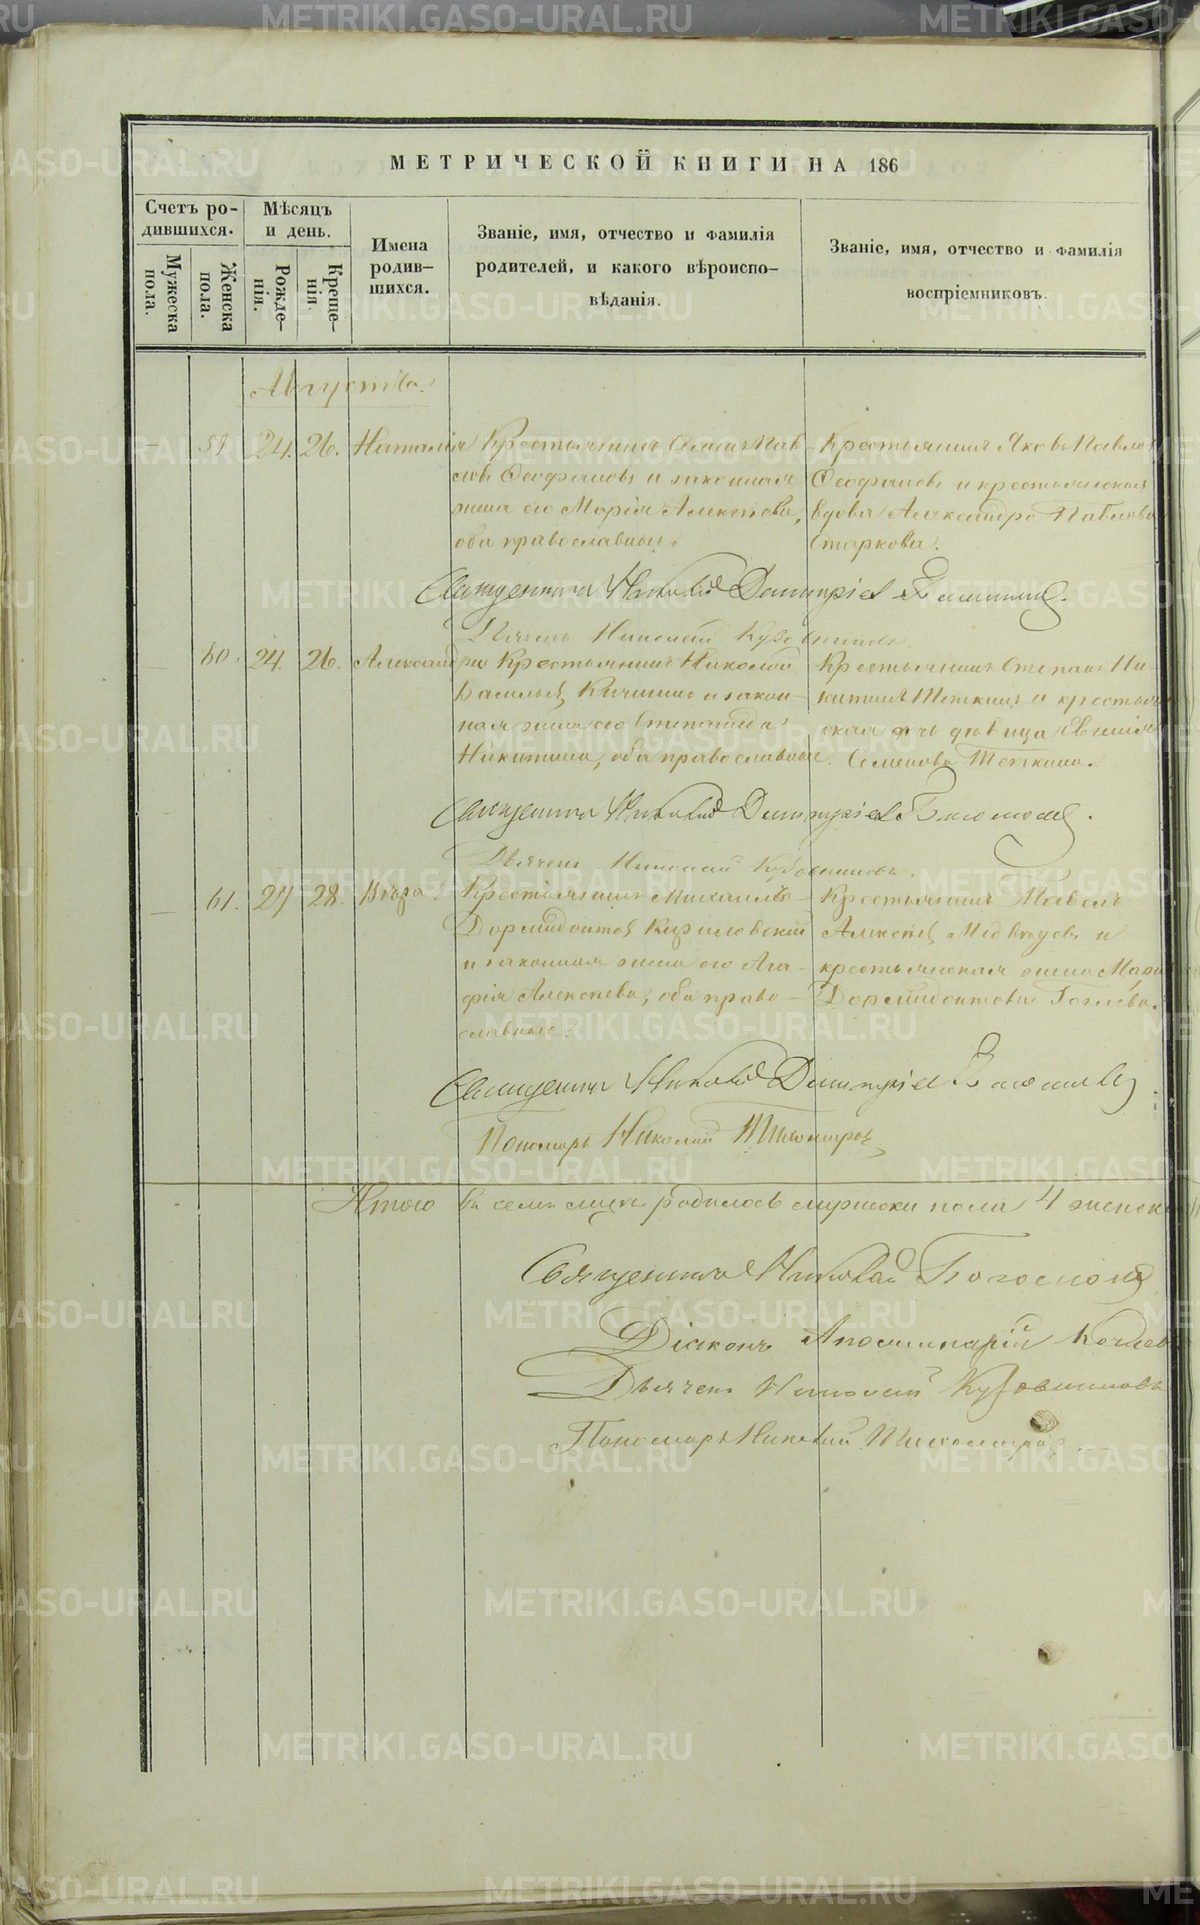 МЕТРИЧЕСКОЙ КНИГИ НА 186
Счетъ ро-
дившихся.
Мѣсяцъ
и день.
Имена
родив-
шихся.
Званіе, имя, отчество и фамилія
родителей, и какого вѣроиспо-
вѣданія.
Званіе, имя, отчество и фамилія
воспріемниковъ.
Мужеска
пола.
Женска
пола.
Рожде-
нія.
Креще-
нія.
Августъ.
59 24. 26. Наталія
Крестьянинъ Семенъ Пав-
ловъ Феофановъ и законная
жена его Марія Алексѣева,
оба православные.
Крестьянинъ Яковъ Павлов
Феофановъ и крестьянская
вдова Александра Павлова
Старкова.
Священникъ Николай Димитріев
Дьячекъ Николай Кубовниковъ.
60. 24. 26. Александра
Крестьянинъ Николай
Васильевъ и закон-
ная жена его Степанида
Никитина, оба православные.
Крестьянинъ Степанъ Ни-
китинъ Теткинъ и крестьян
ская дочь дѣвица Евгенія
Семенова Теткина.
Священникъ Николай Димитріев Богословъ.
Дьячекъ Николай Кубовниковъ.
61. 27 28. Вѣра.
Крестьянинъ Михаилъ
Дормидонтов Кириловскій
и законная жена его Ага-
фія Алексѣева, оба право-
славные.
Крестьянинъ Павелъ
Алексѣев Медвѣдевъ и
крестьянская жена Марі
Дормидонтова
Священникъ Николай Димитріев
Пономарь Николай Тихомировъ
Итого въ семъ мѣсяцѣ родилось мужеска пола 4 женска
Священникъ Николай Богословъ
Діаконъ Аполлинарій
Дьячекъ Николай Кубовниковъ
Пономарь Николай Тихомиров.
METRIKI.GASO-URAL.RU